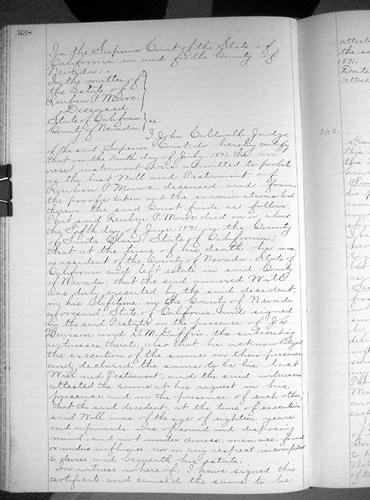 338
In the Superior Court of the State of
California in and for the County of
Nevada.
In the matter of
the Estate of
Reuben P. Moore,
Deceased
State of California
County of Nevada } ss
I John Caldwell Judge
of the said Superior Court do hereby certify
that on the Ninth day of July 1891 the an
nexed instrument was admitted to probate
as the last Will and Testament of
Reuben P. Moore deceased and from
the proofs taken and the examination had
therein the said Court finds as follows,
That said Reuben P. Moore died on or about
the Fifth day of June 1891, in the County
of Santa Clara, State of California;
that at the time of his death he was
a resident of the County of Nevada, State of
California and left estate in said County
of Nevada, that the said annexed Will
was duly executed by the said decedent
in his lifetime, in the County of Nevada
aforesaid State of California and signed
by the said Testator in the presence of
and the subscribing
witnesses thereto, also that he acknowledged
the execution of the same in their presence
and declared the same to be his last
Will and Testament, and the said witnesses
attested the same at his request in his
presence and in the presence of each other;
that the said decedent at the time of executing
said Will was of the age of eighteen years
and upwards was of sound and disposing
mind, and not under duress, menace, fraud
or undue influence, nor in any respect incompetent
to devise and bequeath his estate.
In witness whereof, I have signed this
certificate and caused the same to be